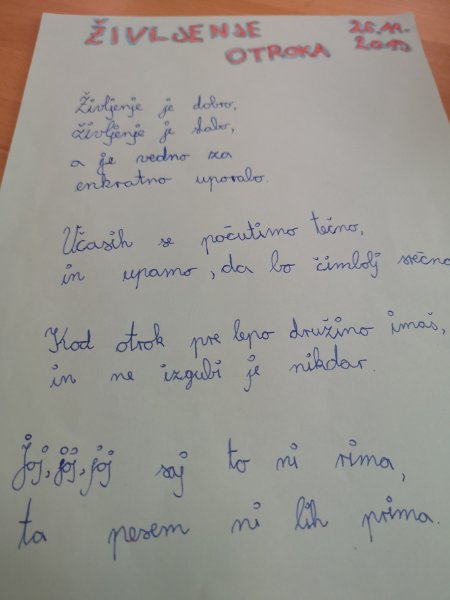 ŽIVLJENJE
OTROKA
Življenje je dobro,
življenje je slabo,
a je vedno za
enkratno uporabo.
Včasih se počutimo tečno,
in upamo, da bo čimbolj srečno
Kod otrok pre lepo družino imaš,
in ne izgubi je nikdar.
Joj, joj, joj saj to ni rima,
ta pesem ni lih prima.